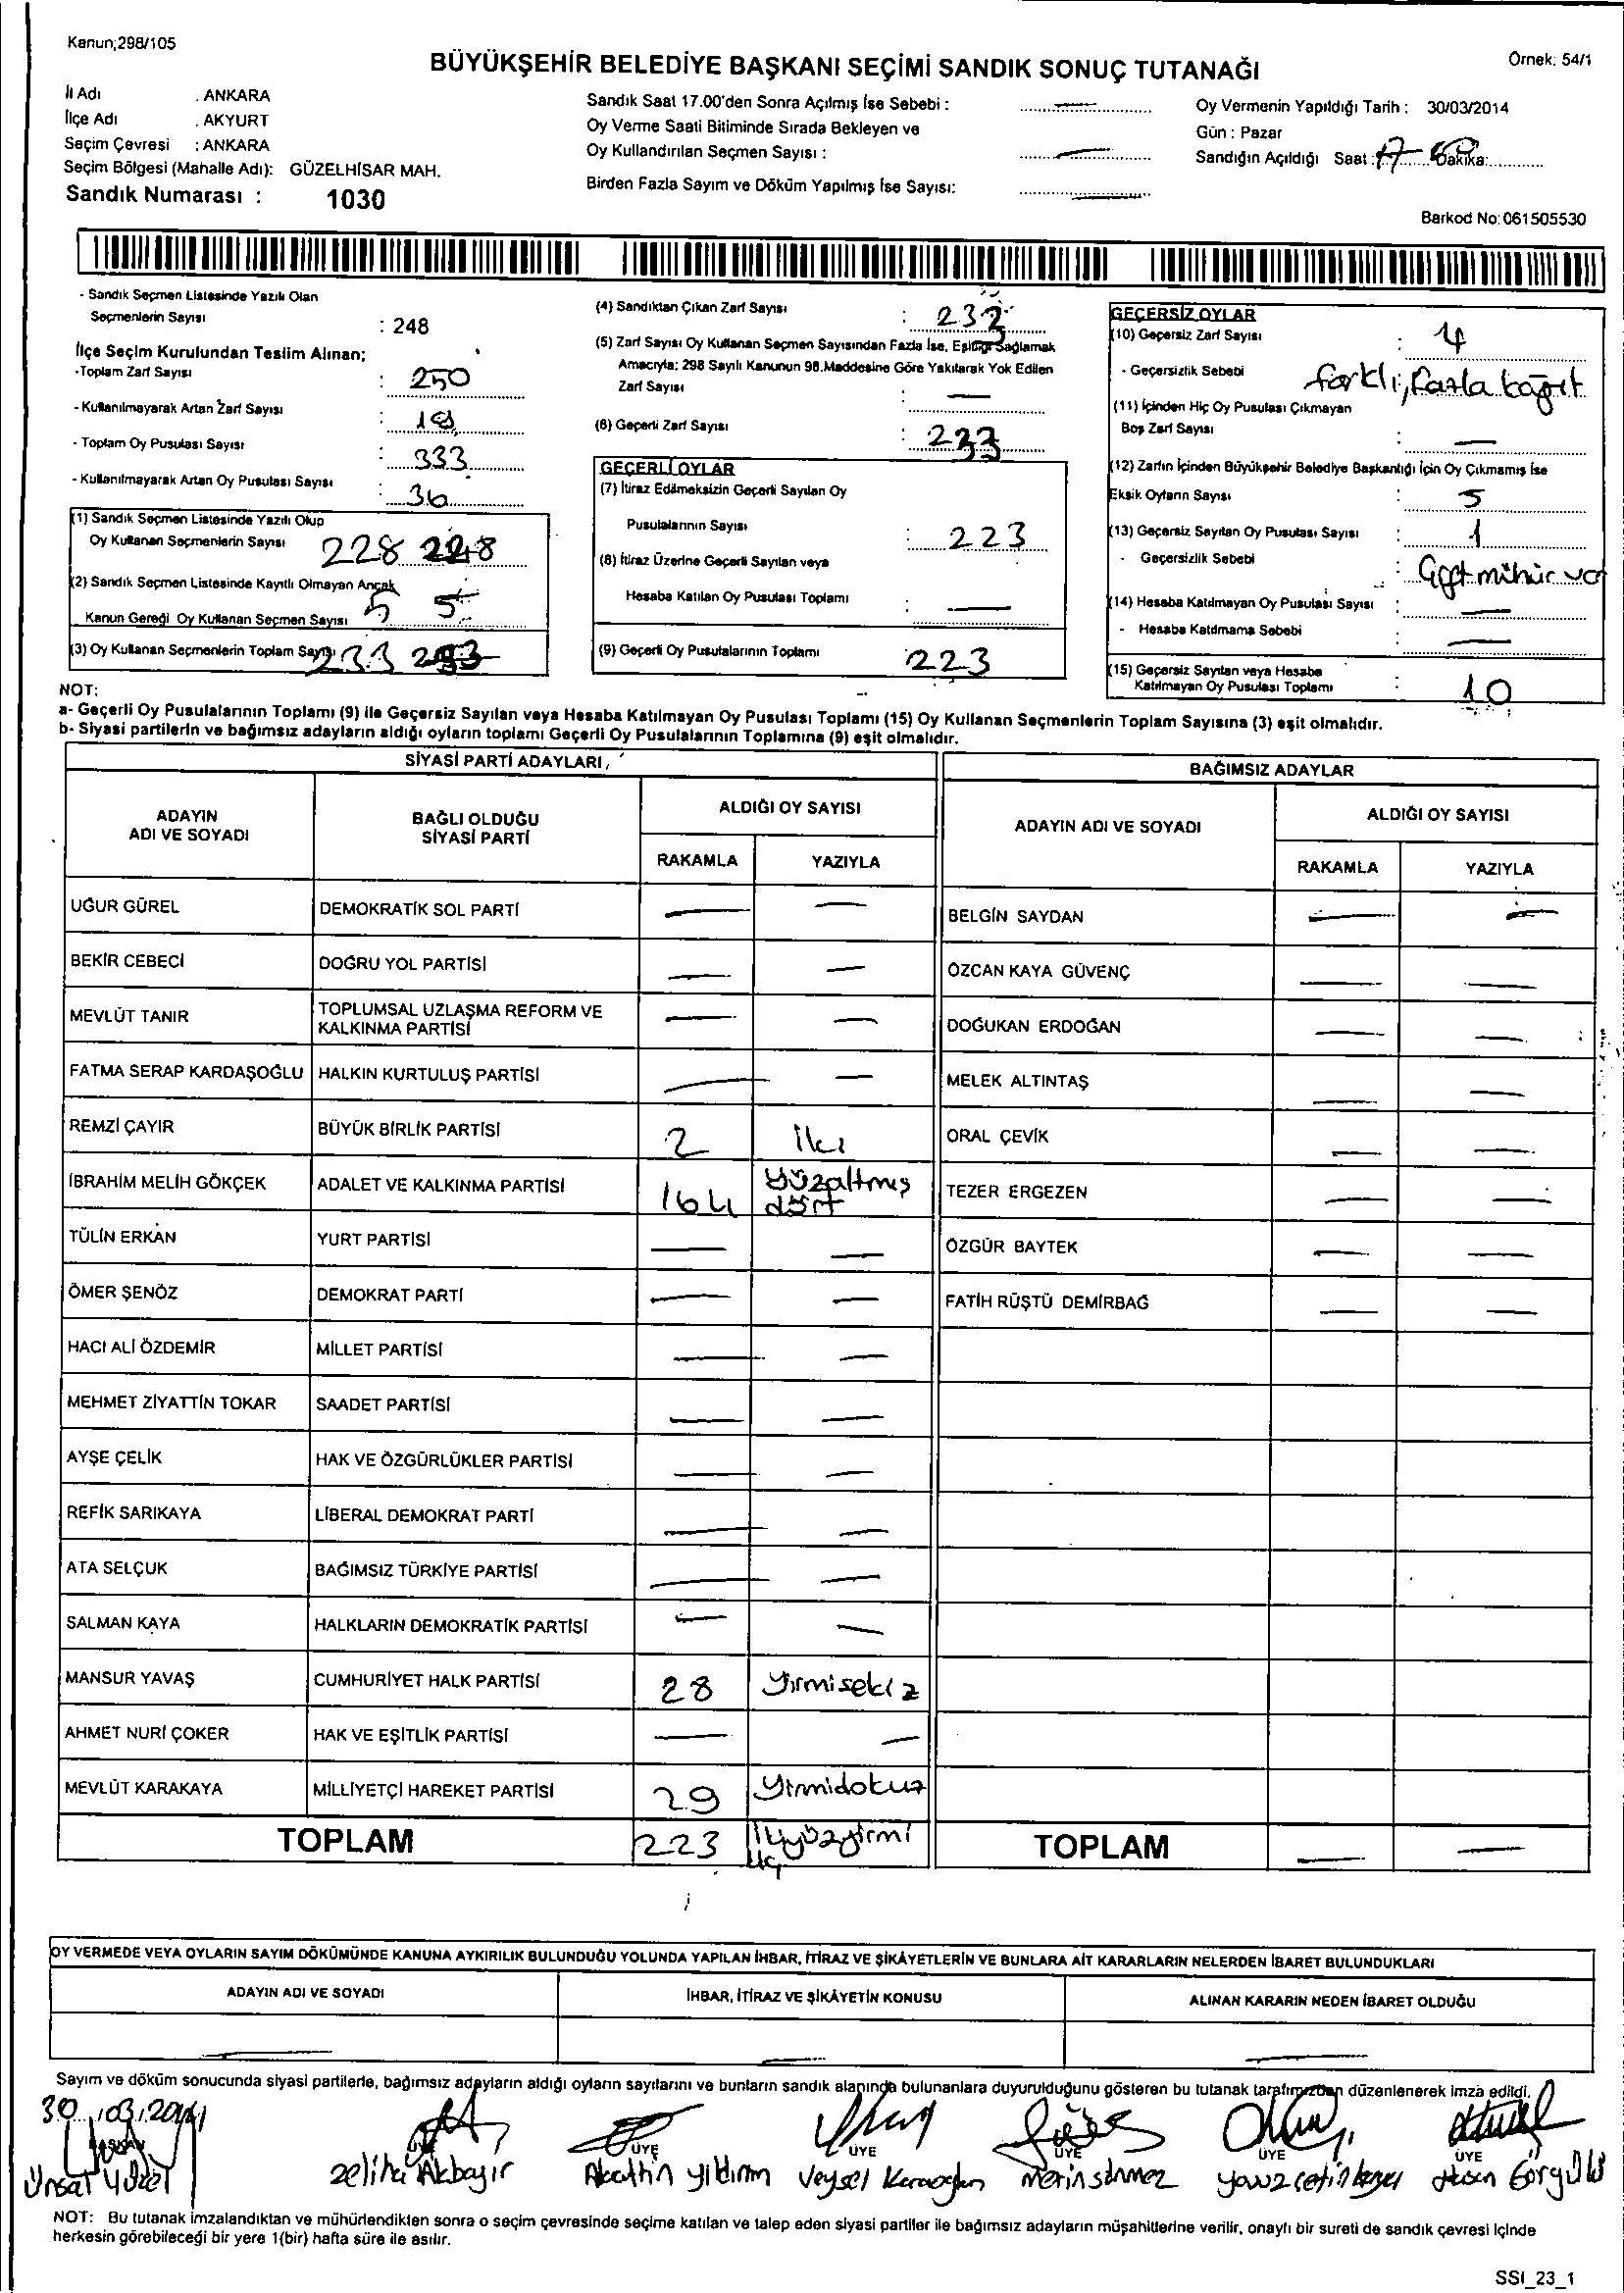 Kanun;298/105
Örnek: 54/1
BÜYÜKŞEHİR BELEDİYE BAŞKANI SEÇİMİ SANDIK SONUÇ TUTANAĞI
İl Adı : ANKARA
İlçe Adı : AKYURT
Seçim Çevresi : ANKARA
Seçim Bölgesi (Mahalle Adı): GÜZELHİSAR MAH.
Sandık Numarası : 1030
Sandık Saat 17.00'den Sonra Açılmış İse Sebebi : —
Oy Verme Saati Bitiminde Sırada Bekleyen ve
Oy Kullandırılan Seçmen Sayısı : —
Birden Fazla Sayım ve Döküm Yapılmış İse Sayısı: —
Oy Vermenin Yapıldığı Tarih : 30/03/2014
Gün : Pazar
Sandığın Açıldığı Saat : 17 Dakika:
Barkod No: 061505530
- Sandık Seçmen Listesinde Yazılı Olan
Seçmenlerin Sayısı : 248
İlçe Seçim Kurulundan Teslim Alınan;
-Toplam Zarf Sayısı : 250
- Kullanılmayarak Artan Zarf Sayısı :
- Toplam Oy Pusulası Sayısı : 333
- Kullanılmayarak Artan Oy Pusulası Sayısı : 36
(1) Sandık Seçmen Listesinde Yazılı Olup
Oy Kullanan Seçmenlerin Sayısı 228 228
(2) Sandık Seçmen Listesinde Kayıtlı Olmayan Ancak
Kanun Gereği Oy Kullanan Seçmen Sayısı 5 5
(3) Oy Kullanan Seçmenlerin Toplam Sayısı 233 233
(4) Sandıktan Çıkan Zarf Sayısı : 233
(5) Zarf Sayısı Oy Kullanan Seçmen Sayısından Fazla İse, Eşitliği Sağlamak
Amacıyla; 298 Sayılı Kanunun 98.Maddesine Göre Yakılarak Yok Edilen
Zarf Sayısı : —
(6) Geçerli Zarf Sayısı : 233
GEÇERLİ OYLAR
(7) İtiraz Edilmeksizin Geçerli Sayılan Oy
Pusulalarının Sayısı : 223
(8) İtiraz Üzerine Geçerli Sayılan veya
Hesaba Katılan Oy Pusulası Toplamı : —
(9) Geçerli Oy Pusulalarının Toplamı 223
GEÇERSİZ OYLAR
(10) Geçersiz Zarf Sayısı : 4
- Geçersizlik Sebebi farklı, fazla kağıt
(11) İçinden Hiç Oy Pusulası Çıkmayan
Boş Zarf Sayısı : —
(12) Zarfın İçinden Büyükşehir Belediye Başkanlığı İçin Oy Çıkmamış İse
Eksik Oyların Sayısı : 5
(13) Geçersiz Sayılan Oy Pusulası Sayısı : 1
- Geçersizlik Sebebi : Çift mühür var
(14) Hesaba Katılmayan Oy Pusulası Sayısı : —
- Hesaba Katılmama Sebebi : —
(15) Geçersiz Sayılan veya Hesaba
Katılmayan Oy Pusulası Toplamı : 10
NOT:
a- Geçerli Oy Pusulalarının Toplamı (9) ile Geçersiz Sayılan veya Hesaba Katılmayan Oy Pusulası Toplamı (15) Oy Kullanan Seçmenlerin Toplam Sayısına (3) eşit olmalıdır.
b- Siyasi partilerin ve bağımsız adayların aldığı oyların toplamı Geçerli Oy Pusulalarının Toplamına (9) eşit olmalıdır.
SİYASİ PARTİ ADAYLARI
ADAYIN ADI VE SOYADI
BAĞLI OLDUĞU SİYASİ PARTİ
ALDIĞI OY SAYISI
RAKAMLA YAZIYLA
UĞUR GÜREL DEMOKRATİK SOL PARTİ — —
BEKİR CEBECİ DOĞRU YOL PARTİSİ — —
MEVLÜT TANIR TOPLUMSAL UZLAŞMA REFORM VE KALKINMA PARTİSİ — —
FATMA SERAP KARDAŞOĞLU HALKIN KURTULUŞ PARTİSİ — —
REMZİ ÇAYIR BÜYÜK BİRLİK PARTİSİ 2 iki
İBRAHİM MELİH GÖKÇEK ADALET VE KALKINMA PARTİSİ 164 yüzaltmış dört
TÜLİN ERKAN YURT PARTİSİ — —
ÖMER ŞENÖZ DEMOKRAT PARTİ — —
HACI ALİ ÖZDEMİR MİLLET PARTİSİ — —
MEHMET ZİYATTİN TOKAR SAADET PARTİSİ — —
AYŞE ÇELİK HAK VE ÖZGÜRLÜKLER PARTİSİ — —
REFİK SARIKAYA LİBERAL DEMOKRAT PARTİ — —
ATA SELÇUK BAĞIMSIZ TÜRKİYE PARTİSİ — —
SALMAN KAYA HALKLARIN DEMOKRATİK PARTİSİ — —
MANSUR YAVAŞ CUMHURİYET HALK PARTİSİ 28 Yirmisekiz
AHMET NURİ ÇOKER HAK VE EŞİTLİK PARTİSİ — —
MEVLÜT KARAKAYA MİLLİYETÇİ HAREKET PARTİSİ 29 Yirmidokuz
TOPLAM 223 ikiyüzyirmi üç
BAĞIMSIZ ADAYLAR
ADAYIN ADI VE SOYADI
ALDIĞI OY SAYISI
RAKAMLA YAZIYLA
BELGİN SAYDAN — —
ÖZCAN KAYA GÜVENÇ — —
DOĞUKAN ERDOĞAN — —
MELEK ALTINTAŞ — —
ORAL ÇEVİK — —
TEZER ERGEZEN — —
ÖZGÜR BAYTEK — —
FATİH RÜŞTÜ DEMİRBAĞ — —
TOPLAM — —
OY VERMEDE VEYA OYLARIN SAYIM DÖKÜMÜNDE KANUNA AYKIRILIK BULUNDUĞU YOLUNDA YAPILAN İHBAR, İTİRAZ VE ŞİKÂYETLERİN VE BUNLARA AİT KARARLARIN NELERDEN İBARET BULUNDUKLARI
ADAYIN ADI VE SOYADI İHBAR, İTİRAZ VE ŞİKÂYETİN KONUSU ALINAN KARARIN NEDEN İBARET OLDUĞU
— — —
Sayım ve döküm sonucunda siyasi partilerle, bağımsız adayların aldığı oyların sayılarını ve bunların sandık alanında bulunanlara duyurulduğunu gösteren bu tutanak tarafımızdan düzenlenerek imza edildi.
30/03/2014
BAŞKAN ÜYE ÜYE ÜYE ÜYE ÜYE ÜYE
Ünsal Yüzel Zeliha Akbayır Alaattin yıldırım Veysel Karaoğlan Metin sönmez Yavuz Hasan Görgülü
NOT: Bu tutanak imzalandıktan ve mühürlendikten sonra o seçim çevresinde seçime katılan ve talep eden siyasi partiler ile bağımsız adayların müşahitlerine verilir, onaylı bir sureti de sandık çevresi içinde
herkesin görebileceği bir yere 1(bir) hafta süre ile asılır.
SSI_23_1